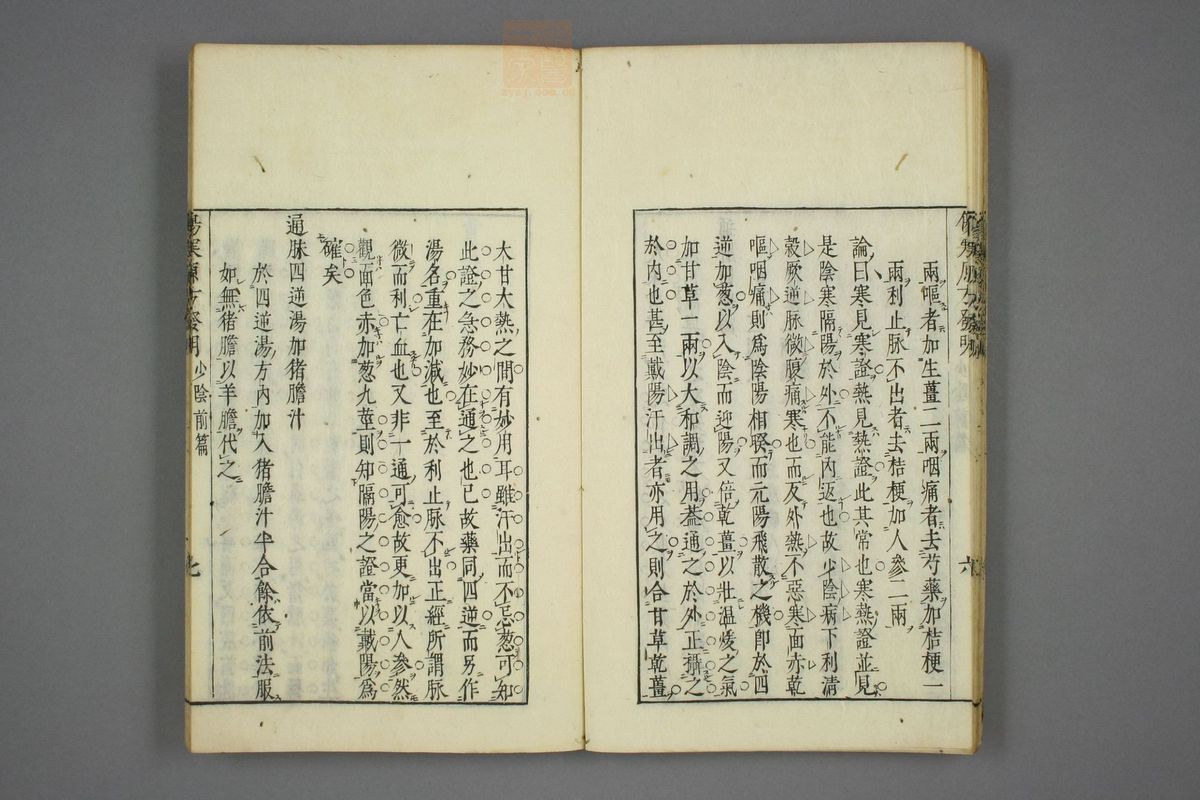 兩嘔者加生薑二兩咽痛者去芍藥加桔梗一
兩利止脉不出者去桔梗加人參二兩
論曰寒見寒證熱見熱證此其常也寒熱證並見
是陰寒隔陽於外不能內返也故少陰病下利清
穀厥逆脉微腹痛寒也而反外熱不惡寒面赤乾
嘔咽痛則為陰陽相睽而元陽飛散之機即於四
逆加葱以入陰而迎陽又倍乾薑以壯溫煖之氣
加甘草一兩以大和調之用葢通之於外正攝之
於內也甚至戴陽汗出者亦用之則合甘草乾薑
六
大甘大熱之間有妙用耳雖汗出而不忌葱可知
此證之急務妙在通之也已故藥同四逆而另作
湯名重在加減也至於利止脉不出正經所謂脉
微而利亡血也又非一通可愈故更加以人參然
觀面色赤加葱九莖則知隔陽之證當以戴陽爲
確矣
通脉四逆湯加猪膽汁
於四逆湯方內加入猪膽汁半合餘依前法服
如無猪膽以羊膽代之
少陰前篇
七